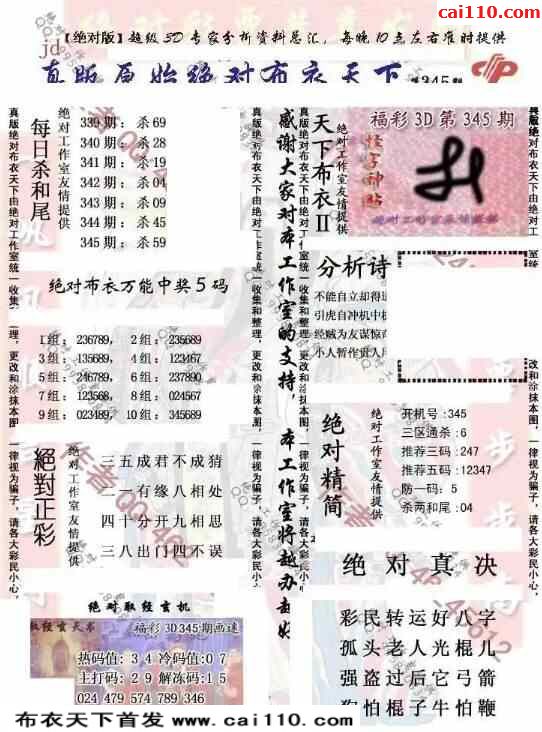 cai110.com
【绝对版】超级3D专家分析资料总汇,每晚10点左右准时提供
真版原始绝对布衣天下 第345期
每日杀和尾
绝对工作室友情提供
339期:杀69
340期:杀28
341期:杀19
342期:杀04
343期:杀09
344期:杀45
345期:杀59
绝对布衣万能中奖5码
1组:236789, 2组:235689
3组:135689, 4组:123467
5组:246789, 6组:237890
7组:123568, 8组:024567
9组:023489, 10组:345689
絕對正彩
绝对工作室友情提供
三五成君不成猜
一一有缘八相处
四十分开九相思
三八出门四不误
绝对取经玄机
取经玄天书 福彩3D345期画谜
热码值:34 冷码值:07
主打码:29 解冻码:15
024 479 574 789 346
真版绝对布衣天下由绝对工作室统一收集和整理,更改和涂抹本图,一律视为骗子,请各大彩民小心,
感谢大家对本工作室的支持,本工作室将越办越好
真版绝对布衣天下由绝对工作室统一收集和整理,更改和涂抹本图,一律视为骗子,请各大彩民小心,
天下布衣II
绝对工作室友情提供
福彩3D第345期
怪字神贴
分析诗
不能自立却得
引虎自冲机中
经贼为友谋惊
小人暂作贵人
绝对精简
绝对工作室友情提供
开机号:345
三区通杀:6
推荐三码:247
推荐五码:12347
防一码:5
杀两和尾:04
绝对真决
彩民转运好八字
孤头老人光棍儿
强盗过后它弓箭
狗怕棍子牛怕鞭
布衣天下首发 www.cai110.com